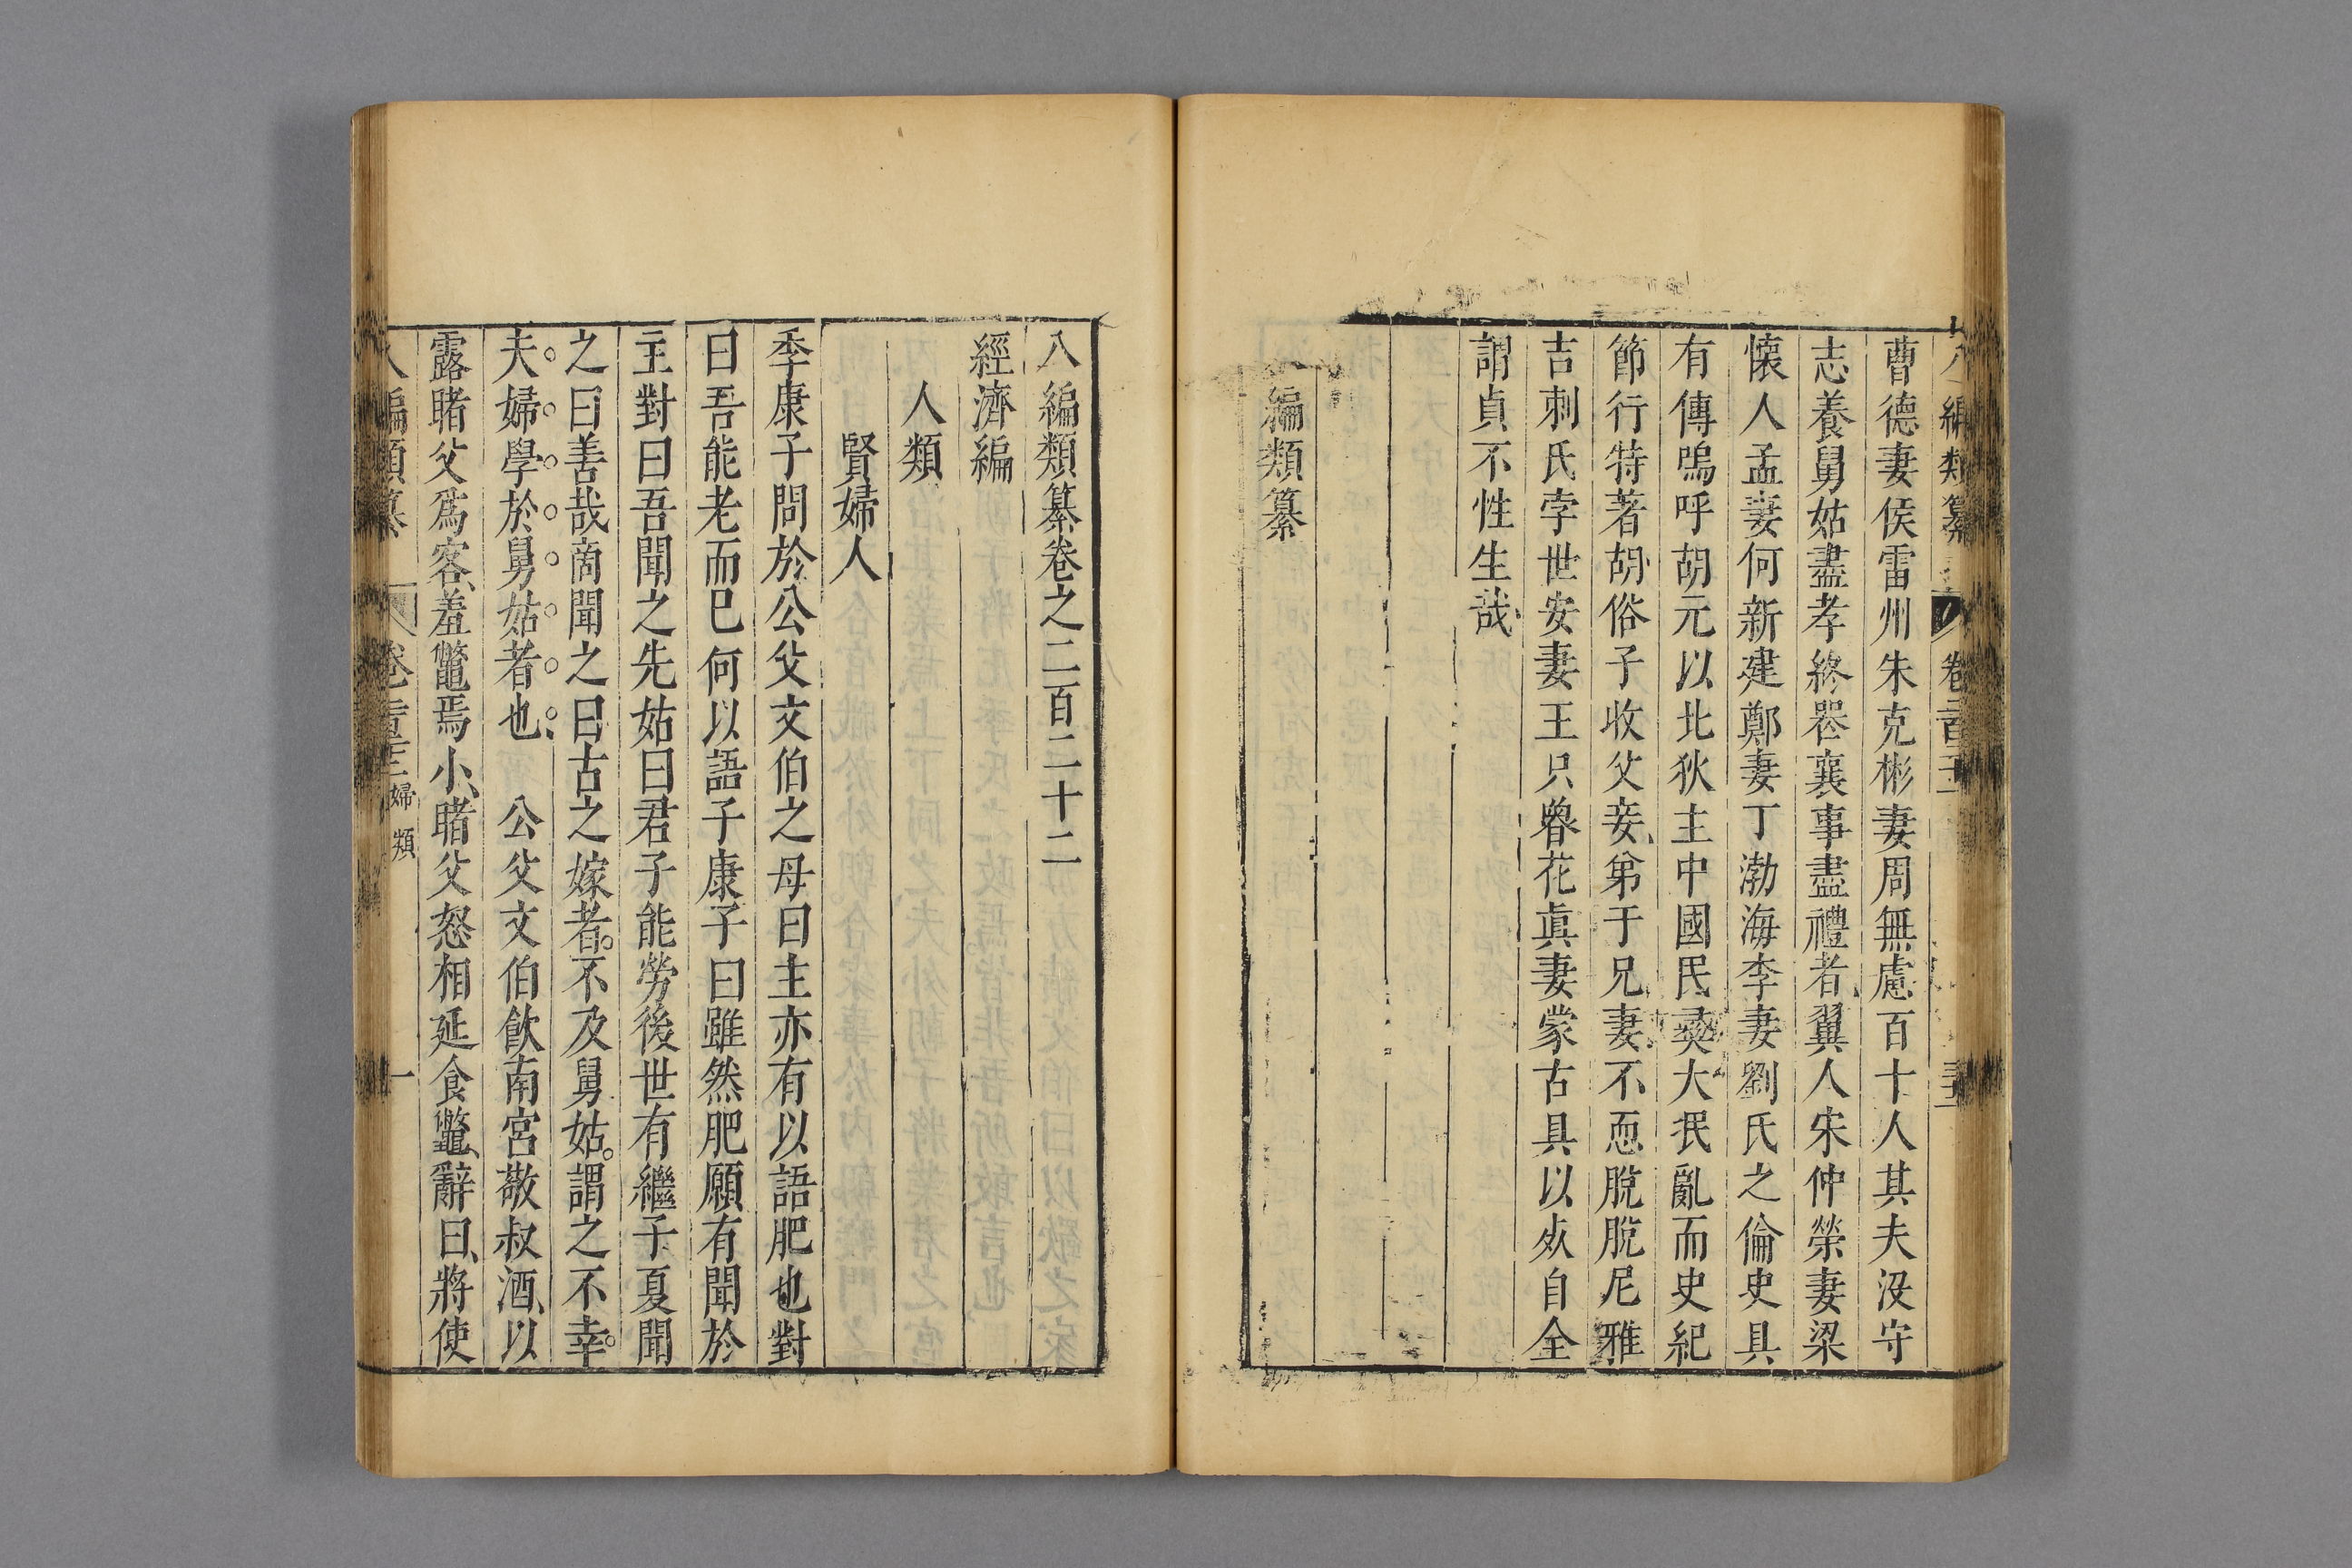 八編類纂 卷二百二十一
曹德妻侯雷州朱克彬妻周無慮百十人其夫沒守
志養舅姑盡孝終喪襄事盡禮者翼人宋仲榮妻梁
懷人孟妻何新建鄭妻丁渤海李妻劉氏之倫史具
有傳嗚呼胡元以北狄主中國民彛大泯亂而史紀
節行特著胡俗子收父妾弟于兄妻不恧脫脫尼雅
吉剌氏孛世安妻王只魯花眞妻蒙古具以死自全
謂貞不性生哉
編類纂
八編類纂卷之二百二十二
經濟編
人類
賢婦人
季康子問於公父文伯之母曰主亦有以語肥也對
曰吾能老而已何以語子康子曰雖然肥願有聞於
主對曰吾聞之先姑曰君子能勞後世有繼子夏聞
之曰善哉商聞之曰古之嫁者不及舅姑謂之不幸
夫婦學於舅姑者也 公父文伯飮南宮敬叔酒以
露睹父爲客羞鼈焉小睹父怒相延食鼈辭曰將使
八編類纂 卷二百二十二 婦類 一